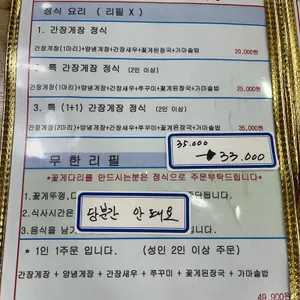 정식 요리 ( 리필 X )
1. 간장게장 정식
간장게장(1마리)+양념게장+간장새우+꽃게된장국+가마솥밥 20,000원
2. 특 간장게장 정식 (2인 이상)
간장게장(1마리)+양념게장+간장새우+쭈꾸미+꽃게된장국+가마솥밥 25,000원
3. 특 (1+1) 간장게장 정식
간장게장(2마리)+양념게장+간장새우+쭈꾸미+꽃게된장국+가마솥밥 35,000원
35.000 → 33.000
무 한 리 필
*꽃게다리를 안드시는분은 정식으로 주문부탁드립니다*
1.꽃게뚜껑,
2.식사시간은
3.음식을 남
당분간 안 돼요
* 1인 1주문 입니다. (성인 2인 이상 주문)
간장게장 + 양념게장 + 간장새우 + 쭈꾸미 + 꽃게된장국 + 가마솥밥
49,900원